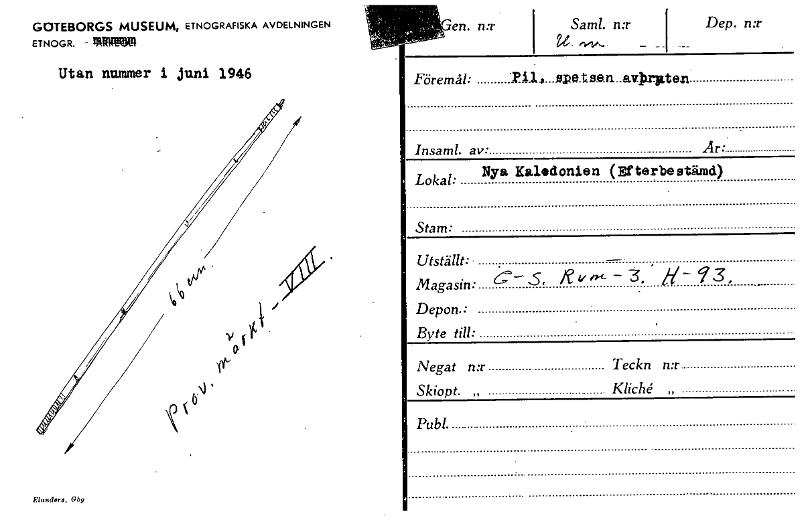 GÖTEBORGS MUSEUM, ETNOGRAFISKA AVDELNINGEN
ETNOGR. -
Utan nummer i juni 1946
66 cm.
Prov. märkt - VIII.
Elanders, Gbg
Gen. n:r
Saml. n:r
Dep. n:r
U. m.
Föremål: Pil, spetsen avbruten
Insaml. av: År:
Lokal: Nya Kaledonien (Efterbestämd)
Stam:
Utställt: —
Magasin: G-S. Rum-3. H-93.
Depon.:
Byte till:
Negat n:r Teckn n:r
Skiopt. „ Kliché „
Publ.